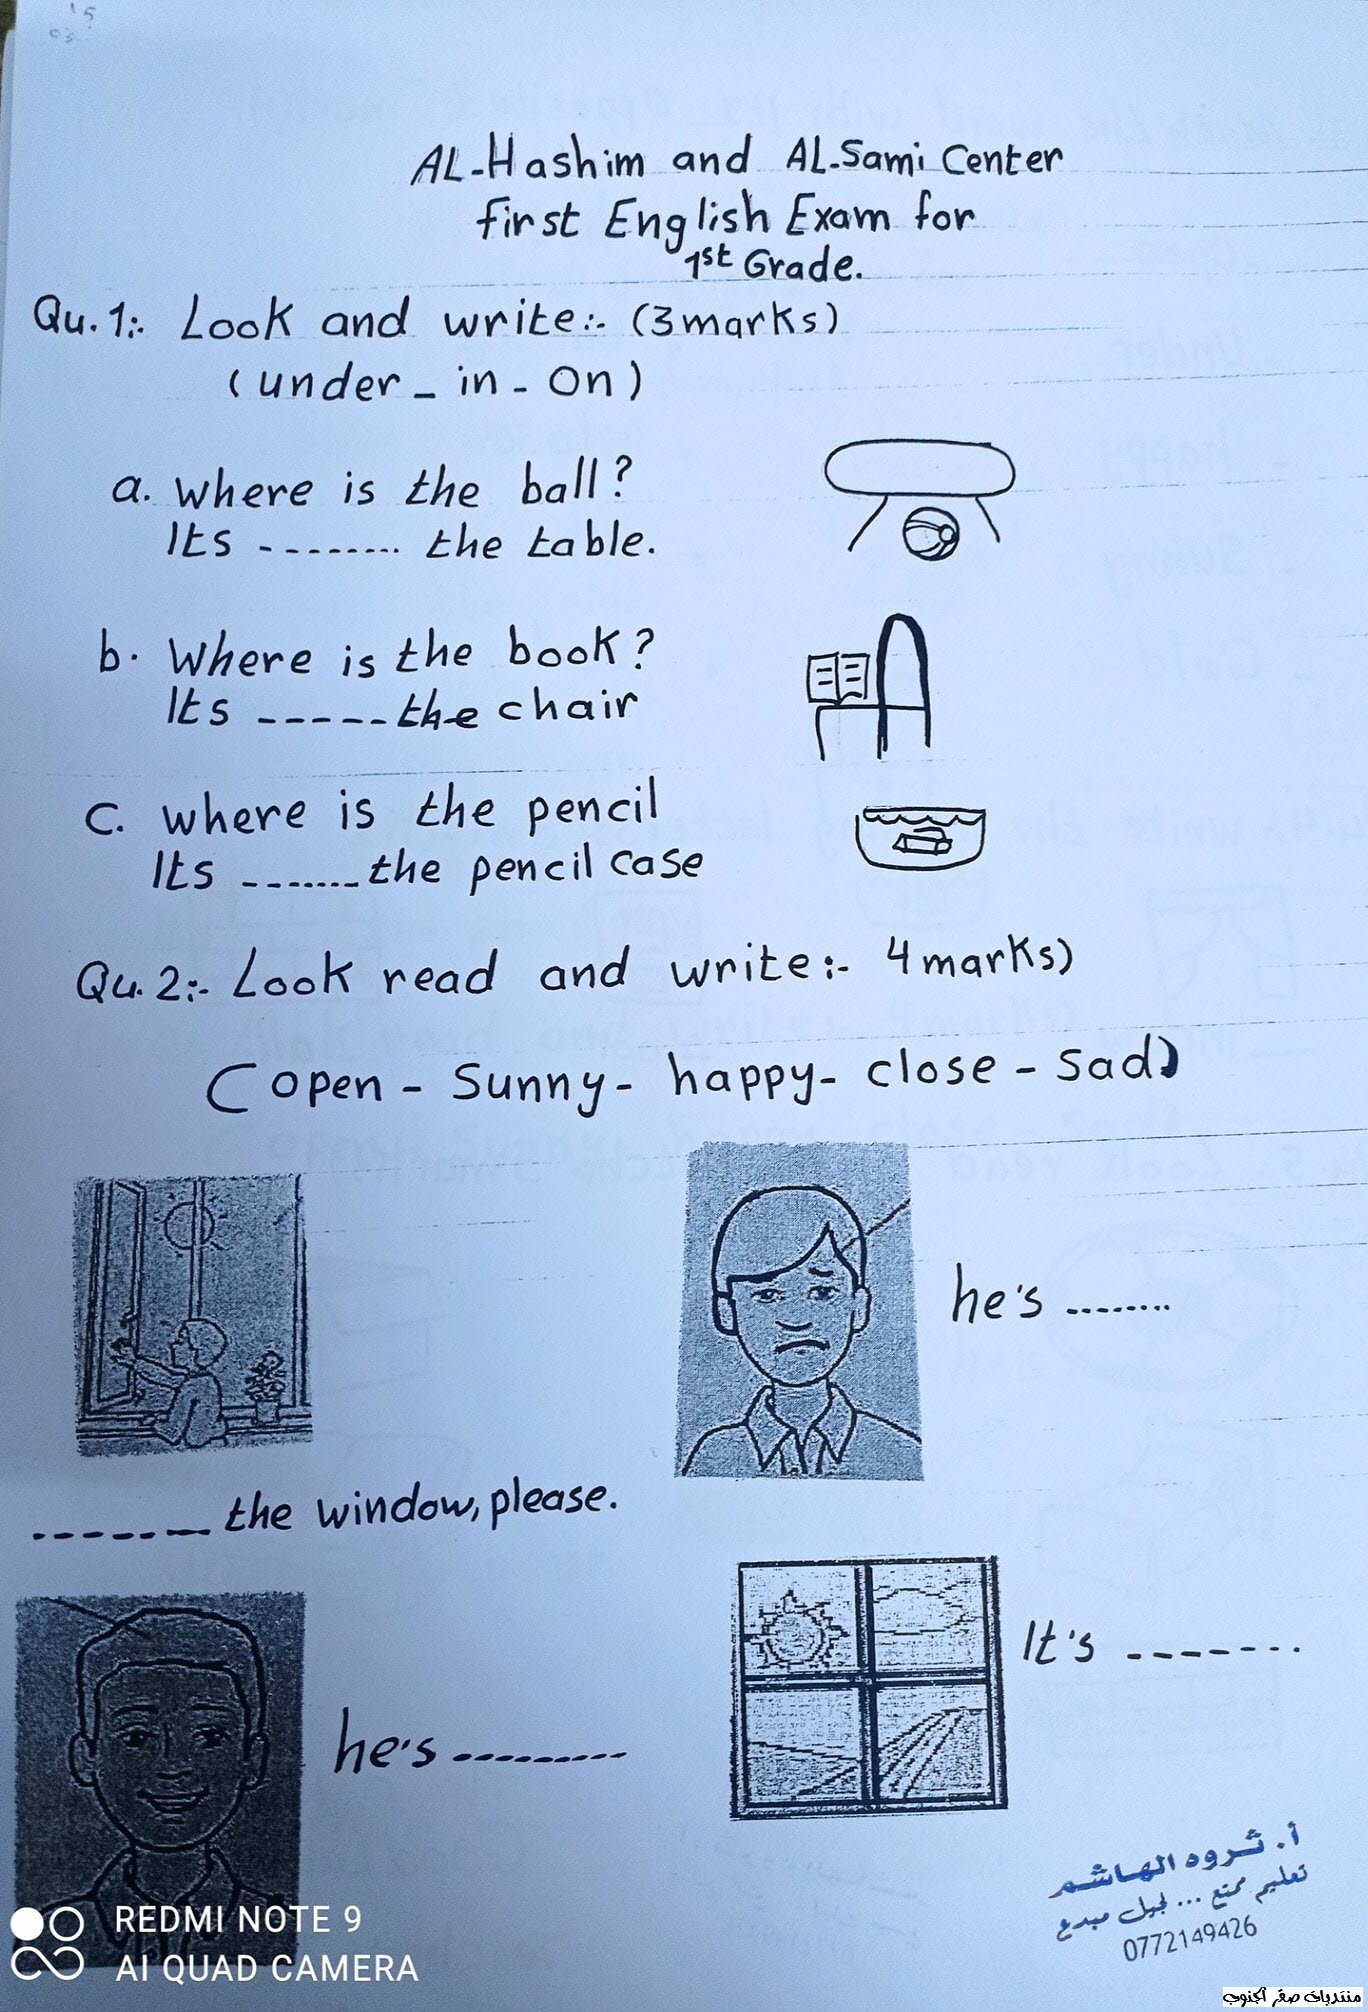 AL-Hashim and AL-Sami Center
first English Exam for
1st Grade.
Qu.1:- Look and write:- (3marks)
(under - in - on)
a. where is the ball?
Its -------- the table.
b. Where is the book?
Its ----- the chair
C. where is the pencil
Its ------- the pencil case
Qu.2:- Look read and write:- 4marks)
(open - Sunny - happy - close - Sad)
he's --------
------ the window, please.
It's -------
he's ---------
أ. ثروه الهاشم
تعليم ممتع ... لجيل مبدع
0772149426
REDMI NOTE 9
AI QUAD CAMERA
منتديات صقر الجنوب